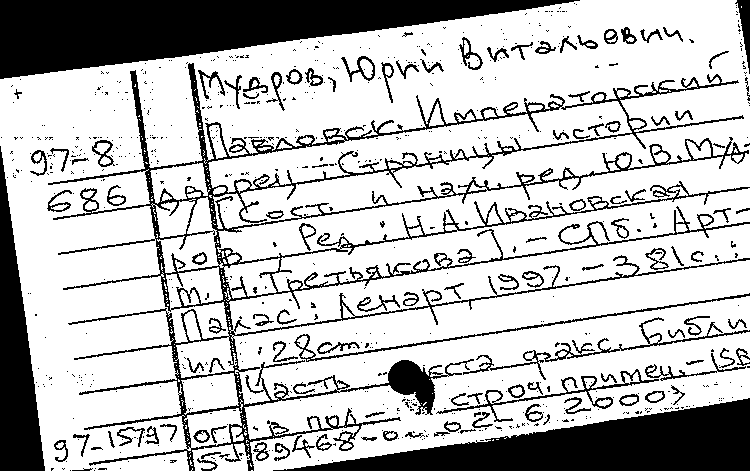 Мудров, Юрий Витальевич.
Павловск. Императорский
97-8
686 дворец : Страницы истории
/ [Сост. и науч. ред. Ю.В.Муд-
ров ; Ред.: Н.А.Ивановская,
Т.Н.Третьякова]. - СПб. : Арт-
Палас : Ленарт, 1997. - 381с. :
ил. ; 28см.
Часть текста факс. Библи
огр. в под- строч. примеч. - ISB
97-15797
5-89468-0 02-6, 2000>